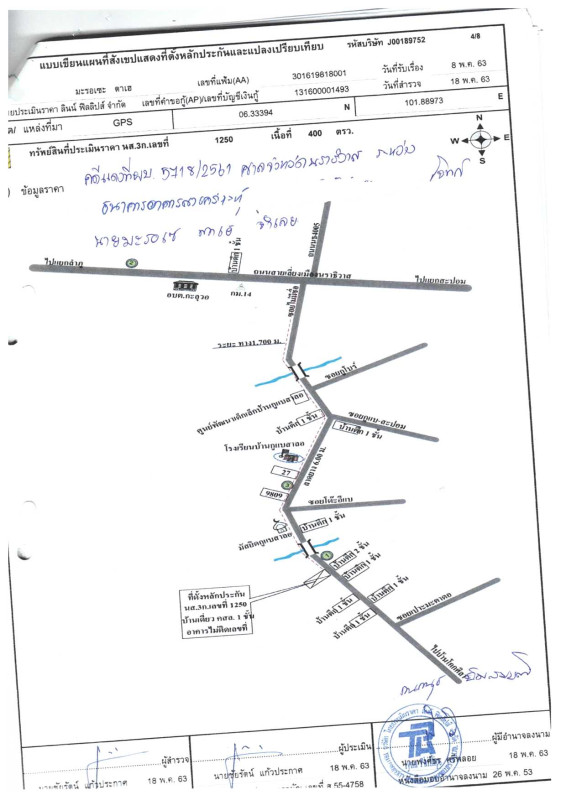 แบบเขียนแผนที่สังเขปแสดงที่ตั้งหลักประกันและแปลงเปรียบเทียบ รหัสบริษัท J00189752 4/8
มะรอเซะ ดาเฮ เลขที่แฟ้ม(AA) 301619818001 วันที่รับเรื่อง 8 พ.ค. 63
ประเมินราคา ลินน์ ฟิลลิปส์ จำกัด เลขที่คำขอกู้(AP)/เลขที่บัญชีเงินกู้ 131600001493 วันที่สำรวจ 18 พ.ค. 63
แหล่งที่มา GPS 06.33394 N 101.88973 E
ทรัพย์สินที่ประเมินราคา นส.3ก.เลขที่ 1250 เนื้อที่ 400 ตรว.
N
W E
S
) ข้อมูลราคา
คดีแดงที่ ผบ. 5718/2561 ศาลจังหวัดนราธิวาส ระหว่าง
ธนาคารอาคารสงเคราะห์ โจทก์
นายมะรอเซ ดาเฮ จำเลย
บ้านตึก 1 ชั้น
ไปแยกลำภู
ถนนสายเลี่ยงเมืองนราธิวาส
ไปแยกสะปอม
อบต.กะลุวอ
กม.14
ระยะ ทาง1,700 ม.
ศูนย์พัฒนาเด็กเล็กบ้านกูแบสาลอ
บ้านตึก 1 ชั้น
ซอยกูแบ-สะปอม
บ้านตึก 1 ชั้น
โรงเรียนบ้านกูแบสาลอ
27
9809
ซอยโต๊ะอีแบ
มัสยิดกูแบสาลอ
บ้านตึก 1 ชั้น
1
บ้านตึก 2 ชั้น
บ้านตึก 1 ชั้น
บ้านตึก 1 ชั้น
บ้านตึก 1 ชั้น
บ้านตึก 1 ชั้น
ที่ตั้งหลักประกัน
นส.3ก.เลขที่ 1250
บ้านเดี่ยว คสล. 1 ชั้น
อาคารไม่ติดเลขที่
ซอยเปาะมะดาดอ
ผู้สำรวจ ผู้ประเมิน ผู้มีอำนาจลงนาม
นายชัยรัตน์ แก้วประกาศ 18 พ.ค. 63 นายชัยรัตน์ แก้วประกาศ 18 พ.ค. 63 18 พ.ค. 63
เลขที่ ส.55-4758 หนังสือมอบอำนาจลงนาม 26 พ.ค. 53